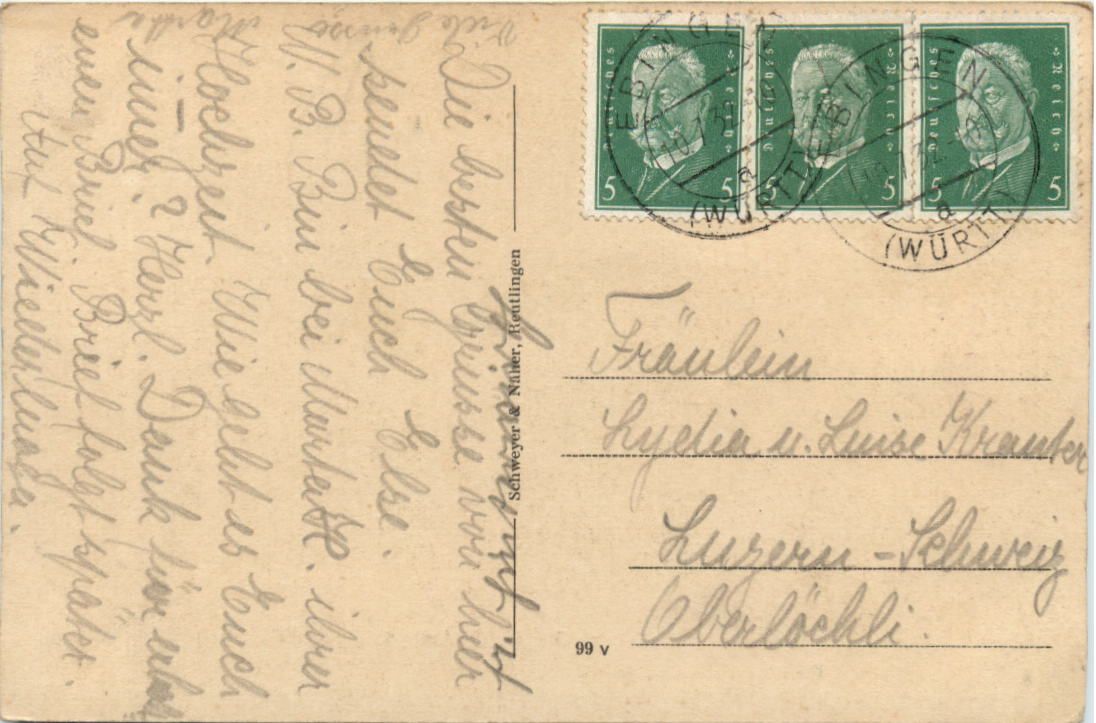 Die besten Grüsse von hier
sendet Euch Else.
W. B. Bin bei Martha H. ihrer
Hochzeit. Wie geht es Euch
immer? Herzl. Dank für
euren Brief. Brief folgt später.
Auf Wiedersehn.
Viele Grüsse
Martha
Schweyer & Näher, Reutlingen
99 v
Deutsches Reich
5 5
Deutsches Reich
5 5
Deutsches Reich
5 5
EBINGEN
a
(WÜRTT)
EBINGEN
a
(WÜRTT)
Fräulein
Lydia u. Luise Krauter
Luzern - Schweiz
Oberlöchli.